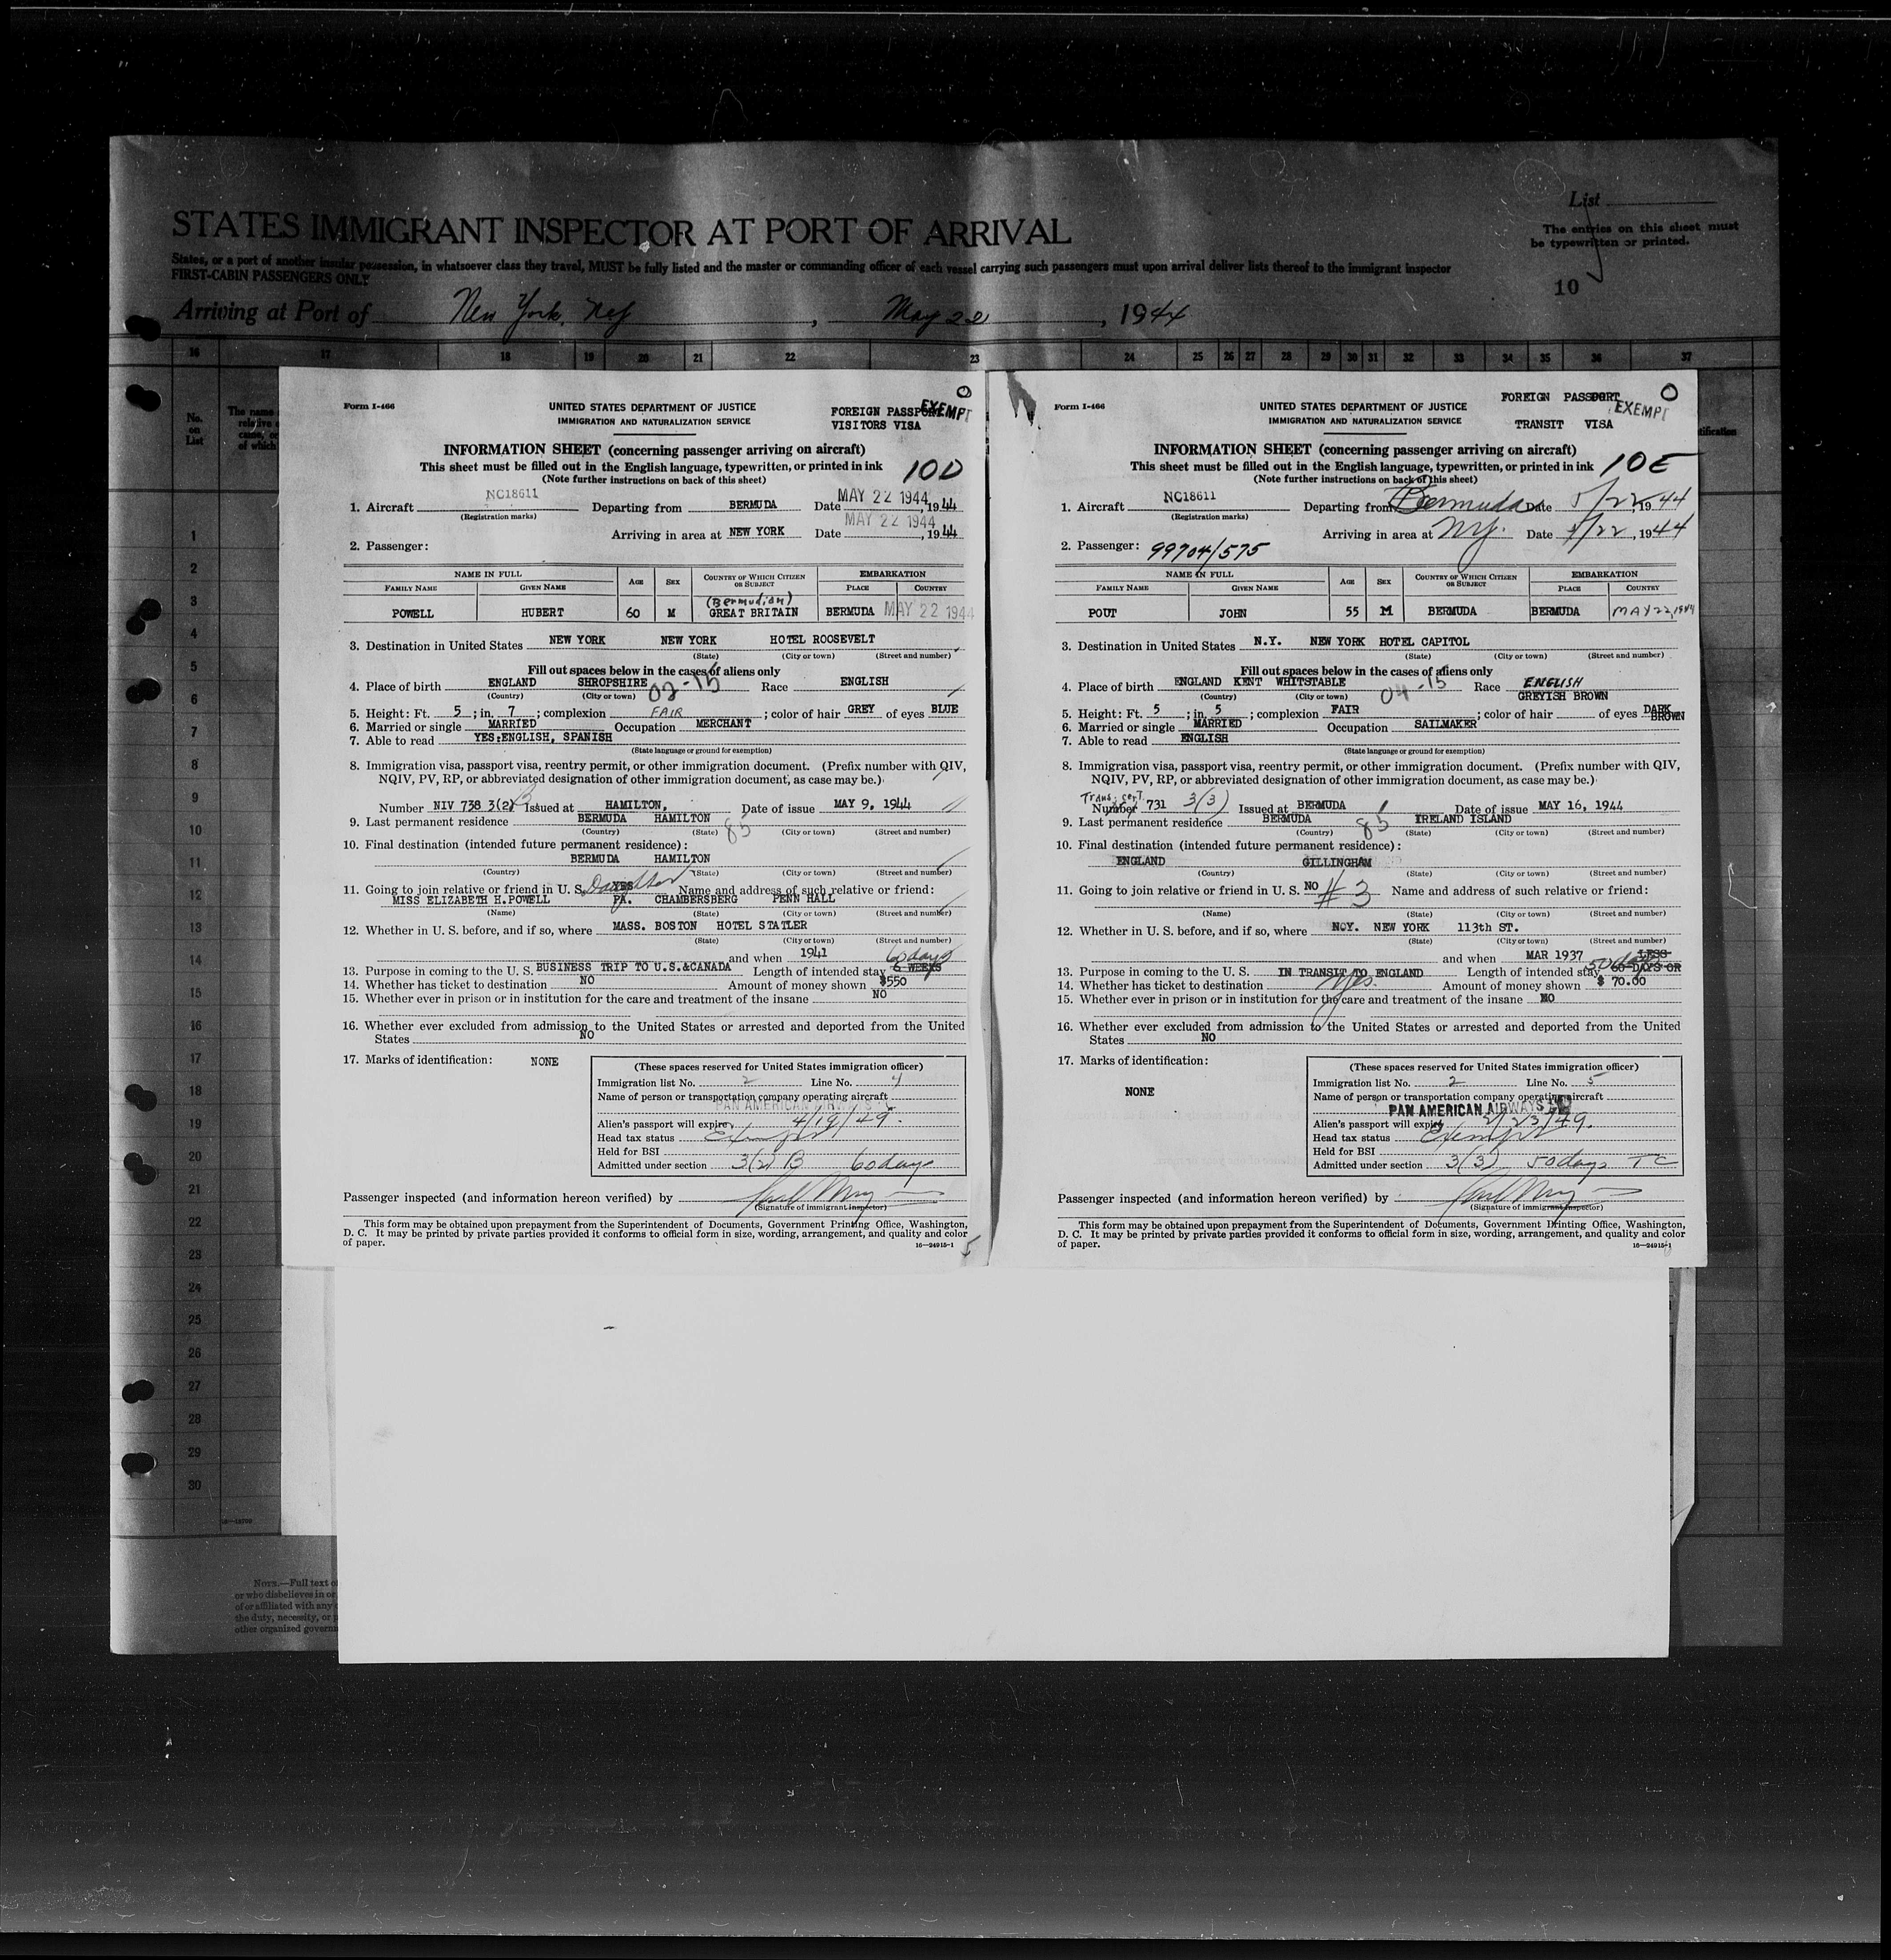 STATES IMMIGRANT INSPECTOR AT PORT OF ARRIVAL
List
The entries on this sheet must
be typewritten or printed.
States, or a port of another insular possession, in whatsoever class they travel, MUST be fully listed and the master or commanding officer of each vessel carrying such passengers must upon arrival deliver lists thereof to the immigrant inspector
FIRST-CABIN PASSENGERS ONLY
10
Arriving at Port of New York, , May 22, 1944
16 17 18 19 20 21 22 23 24 25 26 27 28 29 30 31 32 33 34 35 36 37
No.
on
List
1
2
3
4
5
6
7
8
9
10
11
12
13
14
15
16
17
18
19
20
21
22
23
24
25
26
27
28
29
30
NOTE.—Full text o
or who disbelieves in or
of or affiliated with any
the duty, necessity, or p
other organized governm
Form I-466
UNITED STATES DEPARTMENT OF JUSTICE
IMMIGRATION AND NATURALIZATION SERVICE
FOREIGN PASSPORT
EXEMPT
VISITORS VISA
INFORMATION SHEET (concerning passenger arriving on aircraft)
This sheet must be filled out in the English language, typewritten, or printed in ink
10D
(Note further instructions on back of this sheet)
1. Aircraft NC18611 Departing from BERMUDA Date MAY 22 1944, 1944
(Registration marks)
Arriving in area at NEW YORK Date MAY 22 1944, 1944
2. Passenger:
NAME IN FULL AGE SEX COUNTRY OF WHICH CITIZEN OR SUBJECT EMBARKATION
FAMILY NAME GIVEN NAME PLACE COUNTRY
POWELL HUBERT 60 M (Bermudian) GREAT BRITAIN BERMUDA MAY 22 1944
3. Destination in United States NEW YORK NEW YORK HOTEL ROOSEVELT
(State) (City or town) (Street and number)
Fill out spaces below in the cases of aliens only
4. Place of birth ENGLAND SHROPSHIRE 02-15 Race ENGLISH
(Country) (City or town)
5. Height: Ft. 5; in. 7; complexion FAIR; color of hair GREY of eyes BLUE
6. Married or single MARRIED Occupation MERCHANT
7. Able to read YES:ENGLISH, SPANISH
(State language or ground for exemption)
8. Immigration visa, passport visa, reentry permit, or other immigration document. (Prefix number with QIV,
NQIV, PV, RP, or abbreviated designation of other immigration document, as case may be.)
Number NIV 738 3(2)B Issued at HAMILTON, Date of issue MAY 9, 1944
9. Last permanent residence BERMUDA HAMILTON 85
(Country) (State) (City or town) (Street and number)
10. Final destination (intended future permanent residence):
BERMUDA HAMILTON
(Country) (State) (City or town) (Street and number)
11. Going to join relative or friend in U. S. YES Daughter Name and address of such relative or friend:
MISS ELIZABETH H.POWELL PA. CHAMBERSBERG PENN HALL
(Name) (State) (City or town) (Street and number)
12. Whether in U. S. before, and if so, where MASS. BOSTON HOTEL STATLER
(State) (City or town) (Street and number)
and when 1941
13. Purpose in coming to the U. S. BUSINESS TRIP TO U.S.&CANADA Length of intended stay 6 WEEKS 60 days
14. Whether has ticket to destination NO Amount of money shown $550
15. Whether ever in prison or in institution for the care and treatment of the insane NO
16. Whether ever excluded from admission to the United States or arrested and deported from the United
States NO
17. Marks of identification: NONE
(These spaces reserved for United States immigration officer)
Immigration list No. 2 Line No. 4
Name of person or transportation company operating aircraft
PAN AMERICAN AIRWAYS
Alien's passport will expire 4/19/49.
Head tax status Exempt
Held for BSI
Admitted under section 3(2) B 60 days
Passenger inspected (and information hereon verified) by
(Signature of immigrant inspector)
This form may be obtained upon prepayment from the Superintendent of Documents, Government Printing Office, Washington,
D. C. It may be printed by private parties provided it conforms to official form in size, wording, arrangement, and quality and color
of paper. 16—24915-1
5
Form I-466
UNITED STATES DEPARTMENT OF JUSTICE
IMMIGRATION AND NATURALIZATION SERVICE
FOREIGN PASSPORT
EXEMPT
TRANSIT VISA
INFORMATION SHEET (concerning passenger arriving on aircraft)
This sheet must be filled out in the English language, typewritten, or printed in ink
10E
(Note further instructions on back of this sheet)
1. Aircraft NC18611 Departing from Bermuda Date 5/22, 1944
(Registration marks)
Arriving in area at NY. Date 5/22, 1944
2. Passenger: 99704/575
NAME IN FULL AGE SEX COUNTRY OF WHICH CITIZEN OR SUBJECT EMBARKATION
FAMILY NAME GIVEN NAME PLACE COUNTRY
POUT JOHN 55 M BERMUDA BERMUDA MAY 22, 1944
3. Destination in United States N.Y. NEW YORK HOTEL CAPITOL
(State) (City or town) (Street and number)
Fill out spaces below in the cases of aliens only
4. Place of birth ENGLAND KENT WHITSTABLE 04-15 Race ENGLISH
(Country) (City or town)
GREYISH BROWN
5. Height: Ft. 5; in. 5; complexion FAIR; color of hair of eyes DARK BROWN
6. Married or single MARRIED Occupation SAILMAKER
7. Able to read ENGLISH
(State language or ground for exemption)
8. Immigration visa, passport visa, reentry permit, or other immigration document. (Prefix number with QIV,
NQIV, PV, RP, or abbreviated designation of other immigration document, as case may be.)
Trans. cert.
Number 731 3(3) Issued at BERMUDA Date of issue MAY 16, 1944
9. Last permanent residence BERMUDA 85 IRELAND ISLAND
(Country) (State) (City or town) (Street and number)
10. Final destination (intended future permanent residence):
ENGLAND GILLINGHAM
(Country) (State) (City or town) (Street and number)
11. Going to join relative or friend in U. S. NO #3 Name and address of such relative or friend:
(Name) (State) (City or town) (Street and number)
12. Whether in U. S. before, and if so, where NOY. NEW YORK 113th ST.
(State) (City or town) (Street and number)
and when MAR 1937 LESS
13. Purpose in coming to the U. S. IN TRANSIT TO ENGLAND Length of intended stay 50 days 60 DAYS OR
14. Whether has ticket to destination Yes. Amount of money shown $ 70.00
15. Whether ever in prison or in institution for the care and treatment of the insane NO
16. Whether ever excluded from admission to the United States or arrested and deported from the United
States NO
17. Marks of identification:
NONE
(These spaces reserved for United States immigration officer)
Immigration list No. 2 Line No. 5
Name of person or transportation company operating aircraft
PAN AMERICAN AIRWAYS
Alien's passport will expire
Head tax status Exempt
Held for BSI
Admitted under section 3(3) 50 days TC
Passenger inspected (and information hereon verified) by
(Signature of immigrant inspector)
This form may be obtained upon prepayment from the Superintendent of Documents, Government Printing Office, Washington,
D. C. It may be printed by private parties provided it conforms to official form in size, wording, arrangement, and quality and color
of paper. 16—24915-1